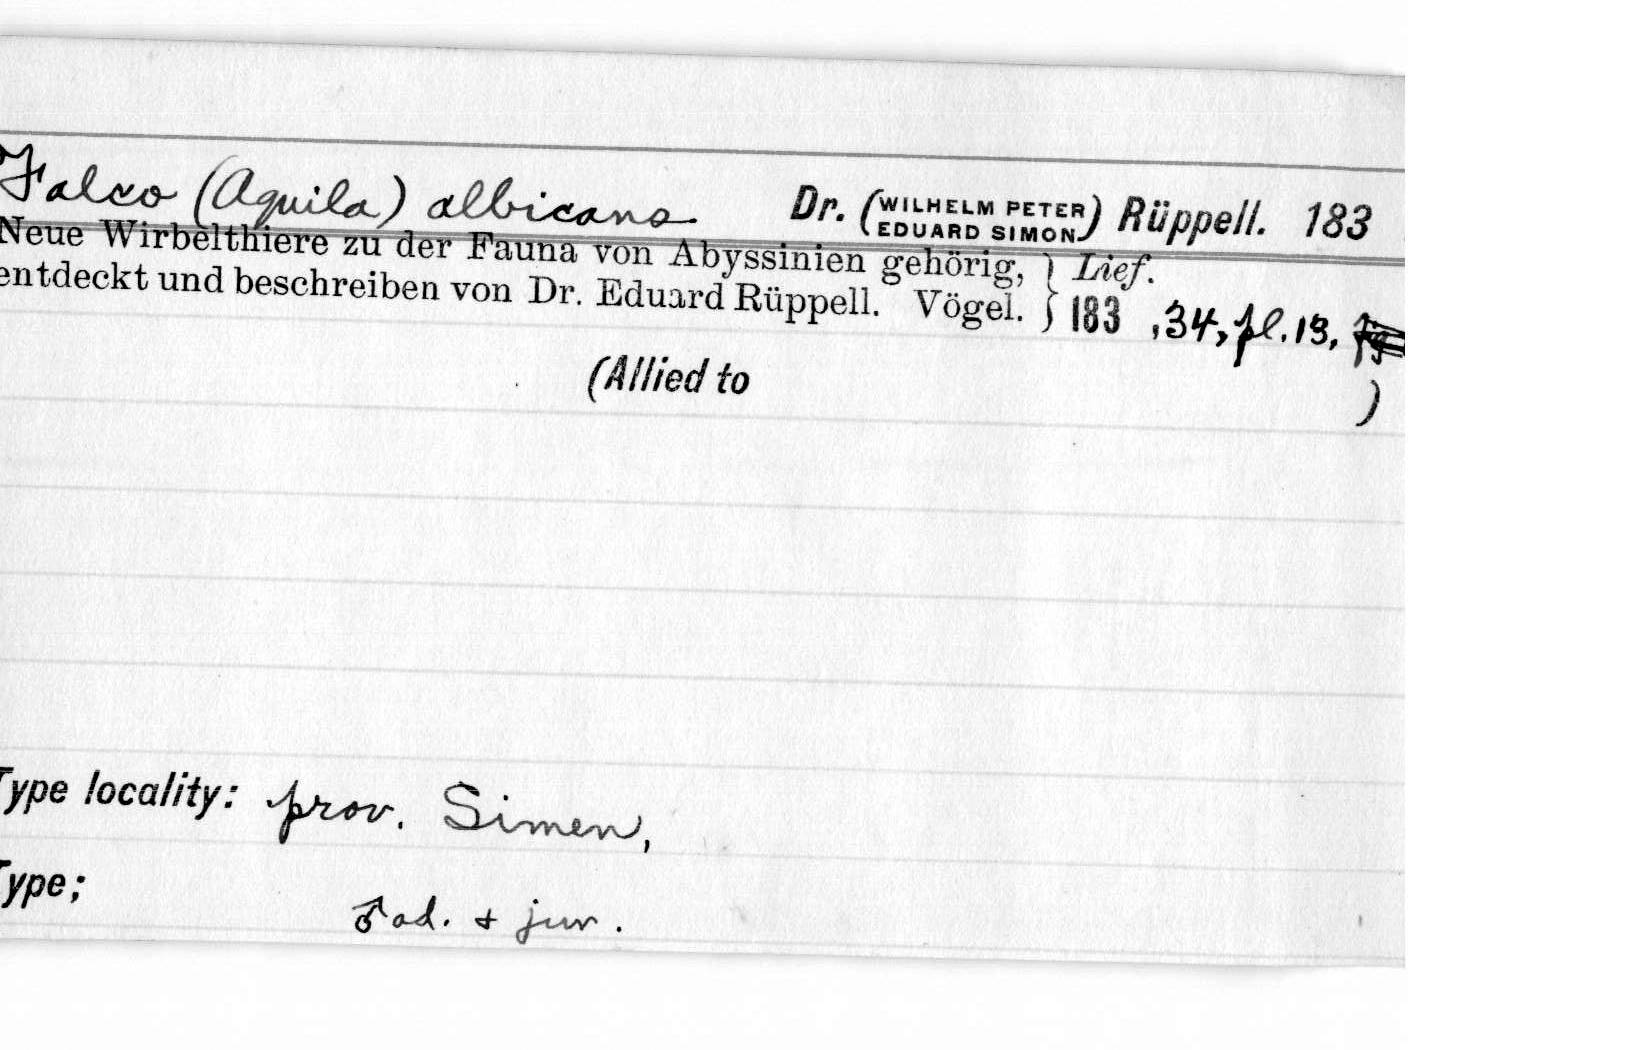 Falco (Aquila) albicans. Dr. (WILHELM PETER EDUARD SIMON) Rüppell. 183
Neue Wirbelthiere zu der Fauna von Abyssinien gehörig, } Lief.
entdeckt und beschreiben von Dr. Eduard Rüppell. Vögel. } 183 ,34, pl.13,
(Allied to )
Type locality: prov. Simen,
Type;
♂ ad. + juv.